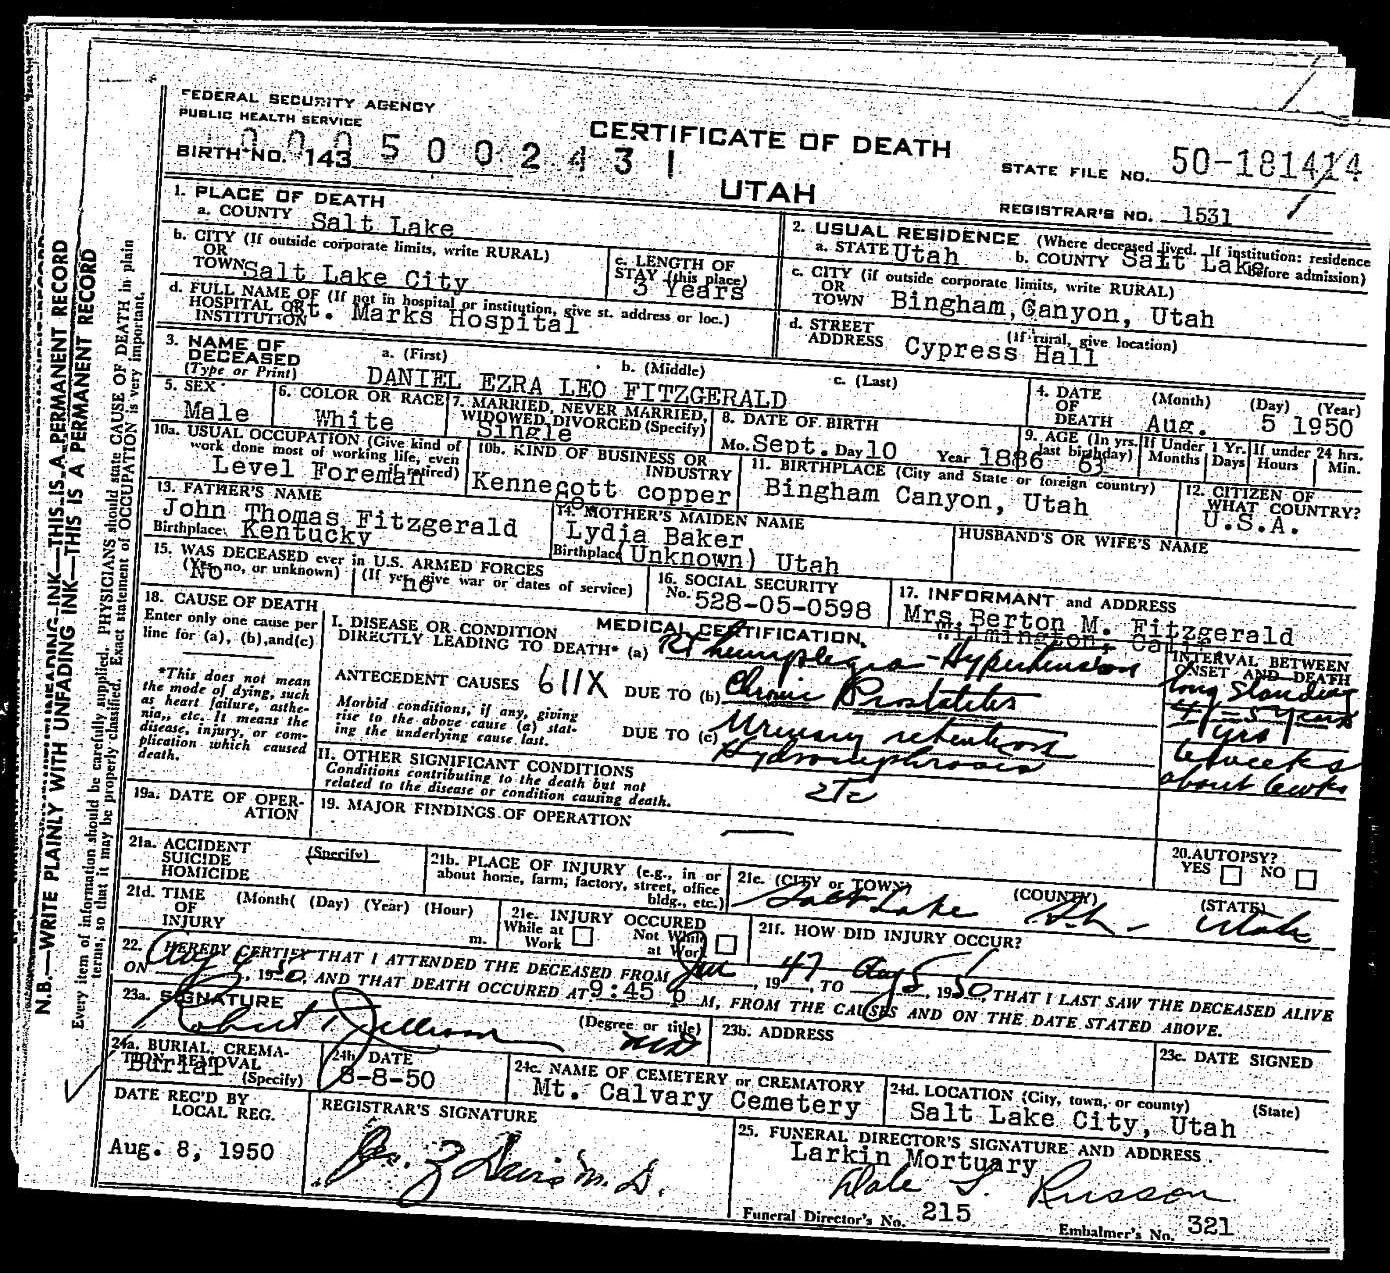 FEDERAL SECURITY AGENCY
PUBLIC HEALTH SERVICE
CERTIFICATE OF DEATH
UTAH
BIRTH NO. 143
0005002431
STATE FILE NO. 50-181414
REGISTRAR'S NO. 1531
1. PLACE OF DEATH
a. COUNTY Salt Lake
b. CITY (If outside corporate limits, write RURAL)
OR
TOWN Salt Lake City
c. LENGTH OF
STAY (this place)
3 Years
d. FULL NAME OF (If not in hospital or institution, give st. address or loc.)
HOSPITAL OR
INSTITUTION St. Marks Hospital
2. USUAL RESIDENCE (Where deceased lived. If institution: residence
before admission)
a. STATE Utah b. COUNTY Salt Lake
c. CITY (if outside corporate limits, write RURAL)
OR
TOWN Bingham, Canyon, Utah
d. STREET (if rural, give location)
ADDRESS Cypress Hall
3. NAME OF
DECEASED
(Type or Print)
a. (First) b. (Middle) c. (Last)
DANIEL EZRA LEO FITZGERALD
4. DATE
OF
DEATH
(Month) (Day) (Year)
Aug. 5 1950
5. SEX
Male
6. COLOR OR RACE
White
7. MARRIED, NEVER MARRIED,
WIDOWED, DIVORCED (Specify)
Single
8. DATE OF BIRTH
Mo. Sept. Day 10 Year 1886
9. AGE (In yrs.
last birthday)
63
If Under 1 Yr.
Months Days
If under 24 hrs.
Hours Min.
10a. USUAL OCCUPATION (Give kind of
work done most of working life, even
if retired)
Level Foreman
10b. KIND OF BUSINESS OR
INDUSTRY
Kennecott copper
co.
11. BIRTHPLACE (City and State or foreign country)
Bingham Canyon, Utah
12. CITIZEN OF
WHAT COUNTRY?
U.S.A.
13. FATHER'S NAME
John Thomas Fitzgerald
Birthplace Kentucky
14. MOTHER'S MAIDEN NAME
Lydia Baker
Birthplace (Unknown) Utah
HUSBAND'S OR WIFE'S NAME
15. WAS DECEASED ever in U.S. ARMED FORCES
(Yes, no, or unknown) (If yes, give war or dates of service)
No no
16. SOCIAL SECURITY
No. 528-05-0598
17. INFORMANT and ADDRESS
Mrs. Berton M. Fitzgerald
Wilmington, Calif.
18. CAUSE OF DEATH
Enter only one cause per
line for (a), (b), and (c)
*This does not mean
the mode of dying, such
as heart failure, asthe-
nia, etc. It means the
disease, injury, or com-
plication which caused
death.
MEDICAL CERTIFICATION
I. DISEASE OR CONDITION
DIRECTLY LEADING TO DEATH* (a) Rt hemiplegia - Hypertension
ANTECEDENT CAUSES 611X DUE TO (b) Chronic Prostatitis
Morbid conditions, if any, giving
rise to the above cause (a) stat-
ing the underlying cause last.
DUE TO (c) Urinary retention
Hydronephrosis
II. OTHER SIGNIFICANT CONDITIONS
Conditions contributing to the death but not
related to the disease or condition causing death.
INTERVAL BETWEEN
ONSET AND DEATH
long standing
4 - 5 years
yrs
6 weeks
about 6 wks
19a. DATE OF OPER-
ATION
19. MAJOR FINDINGS OF OPERATION
20. AUTOPSY?
YES NO
21a. ACCIDENT (Specify)
SUICIDE
HOMICIDE
21b. PLACE OF INJURY (e.g., in or
about home, farm, factory, street, office
bldg., etc.)
21c. (CITY or TOWN) (COUNTY) (STATE)
Salt Lake S.L. Utah
21d. TIME (Month( (Day) (Year) (Hour)
OF
INJURY m.
21e. INJURY OCCURED
While at Work Not While at Work
21f. HOW DID INJURY OCCUR?
22. I HEREBY CERTIFY THAT I ATTENDED THE DECEASED FROM Jan, 1947, TO Aug 5, 1950, THAT I LAST SAW THE DECEASED ALIVE
ON Aug 5, 1950, AND THAT DEATH OCCURED AT 9:45 p M, FROM THE CAUSES AND ON THE DATE STATED ABOVE.
23a. SIGNATURE (Degree or title)
Robert MD
23b. ADDRESS
23c. DATE SIGNED
24a. BURIAL, CREMA-
TION REMOVAL
(Specify)
Burial
24b. DATE
8-8-50
24c. NAME OF CEMETERY or CREMATORY
Mt. Calvary Cemetery
24d. LOCATION (City, town, or county) (State)
Salt Lake City, Utah
DATE REC'D BY
LOCAL REG.
Aug. 8, 1950
REGISTRAR'S SIGNATURE
Davis M.D.
25. FUNERAL DIRECTOR'S SIGNATURE AND ADDRESS
Larkin Mortuary
Dale L. Russon
Funeral Director's No. 215 Embalmer's No. 321
N.B.—WRITE PLAINLY WITH UNFADING INK—THIS IS A PERMANENT RECORD
Every item of information should be carefully supplied. PHYSICIANS should state CAUSE OF DEATH in plain
terms, so that it may be properly classified. Exact statement of OCCUPATION is very important.